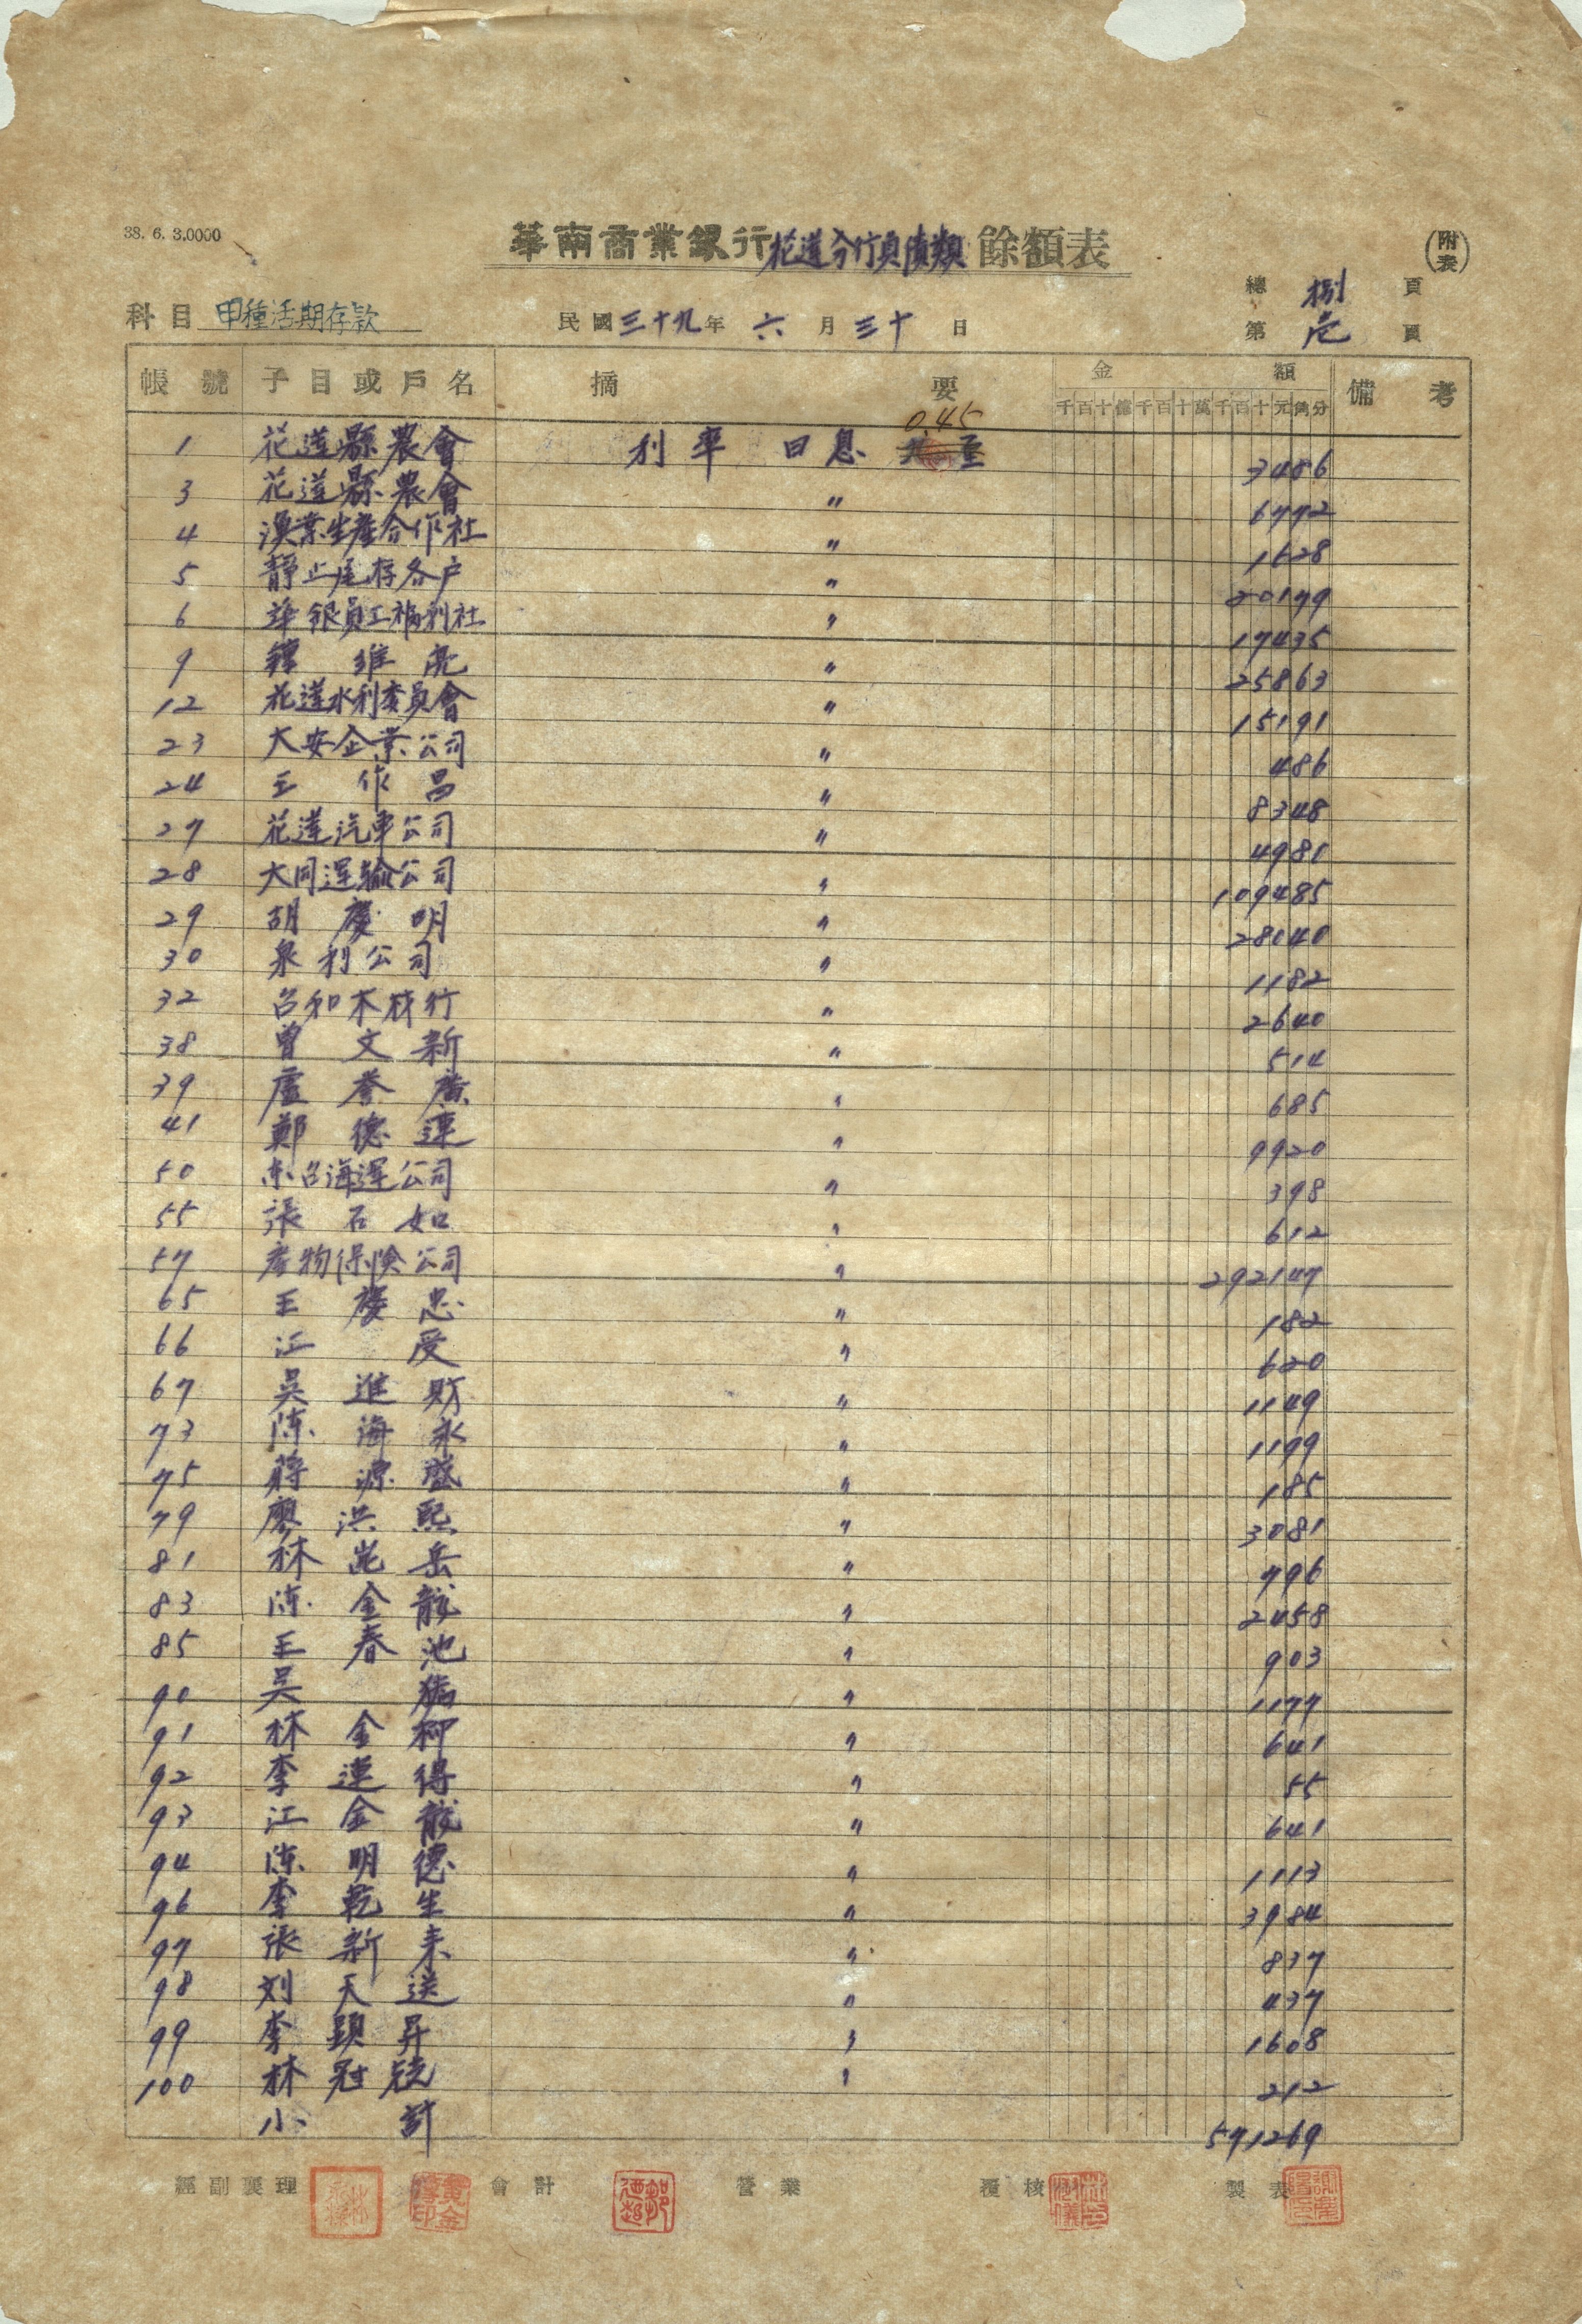 38. 6. 3,0000
華南商業銀行花蓮分行負債類餘額表
(附表)
總 捌 頁
科目 甲種活期存款 民國三十九年 六 月 三十 日 第 壱 頁
帳號 子目或戶名 摘要 金額 備考
千百十億千百十萬千百十元角分
0.45
1 花蓮縣農會 利率 日息 3486
3 花蓮縣農會 〃 6772
4 漁業生產合作社 〃 1628
5 靜止尾存各户 〃 20179
6 華銀員工福利社 〃 17435
9 維亮 〃 25863
12 花蓮水利委員會 〃 15191
23 大安企業公司 〃 486
24 王作昌 〃 8348
27 花蓮汽車公司 〃 4981
28 大同運輸公司 〃 109485
29 胡慶明 〃 28040
30 泉利公司 〃 1182
32 呂和木材行 〃 2640
38 曾文新 〃 514
39 盧廣 〃 685
41 鄭德連 〃 9920
50 东台海運公司 〃 398
55 張石如 〃 612
57 產物保險公司 〃 292147
65 王慶忠 〃 182
66 江受 〃 620
67 吳進財 〃 1149
73 陈海永 〃 1199
75 蔣源盛 〃 185
79 廖洪熙 〃 3081
81 林崑岳 〃 796
83 陈金龍 〃 2458
85 王春池 〃 903
90 吳 〃 1177
91 林金柳 〃 641
92 李連得 〃 55
93 江金龍 〃 641
94 陈明德 〃 1113
96 李乾生 〃 3984
97 張新来 〃 837
98 刘天送 〃 437
99 李顕昇 〃 1608
100 林冠 〃 212
小計 571269
經副襄理 會計 營業 覆核 製表